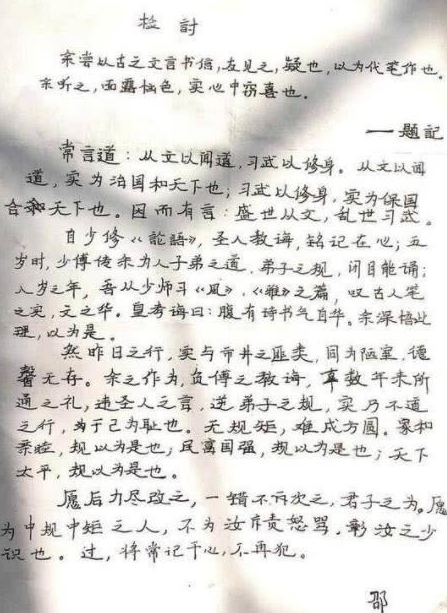 检讨
余尝以古之文言书信,友见之,疑也,以为代笔作也。
余听之,面露恼色,实心中窃喜也。
——题记
常言道:从文以闻道,习武以修身。从文以闻
道,实为治国和天下也;习武以修身,实为保国
合和天下也。因而有言:盛世从文,乱世习武。
自少修《論語》,圣人教诲,铭记在心;五
岁时,少傅传余为人子弟之道,弟子之规,闭目能诵;
八岁之年,吾从少师习《风》,《雅》之篇,叹古人笔
之实,文之华。皇考诲曰:腹有诗书气自华。余深悟此
理,以为是。
然昨日之行,实与市井之匪类,同为陋室,德
馨无存。余之作为,负傅之教诲,辜数年来所
通之礼,违圣人之言,逆弟子之规,实乃不道
之行,为于己为耻也。无规矩,难成方圆。家和
亲睦,规以为是也;民富国强,规以为是也;天下
太平,规以为是也。
愿后力尽改之,一错不许次之,君子之为。愿
为中规中矩之人,不为汝斥责怒骂。彰汝之少
识也。过,将常记于心,不再犯。
邵